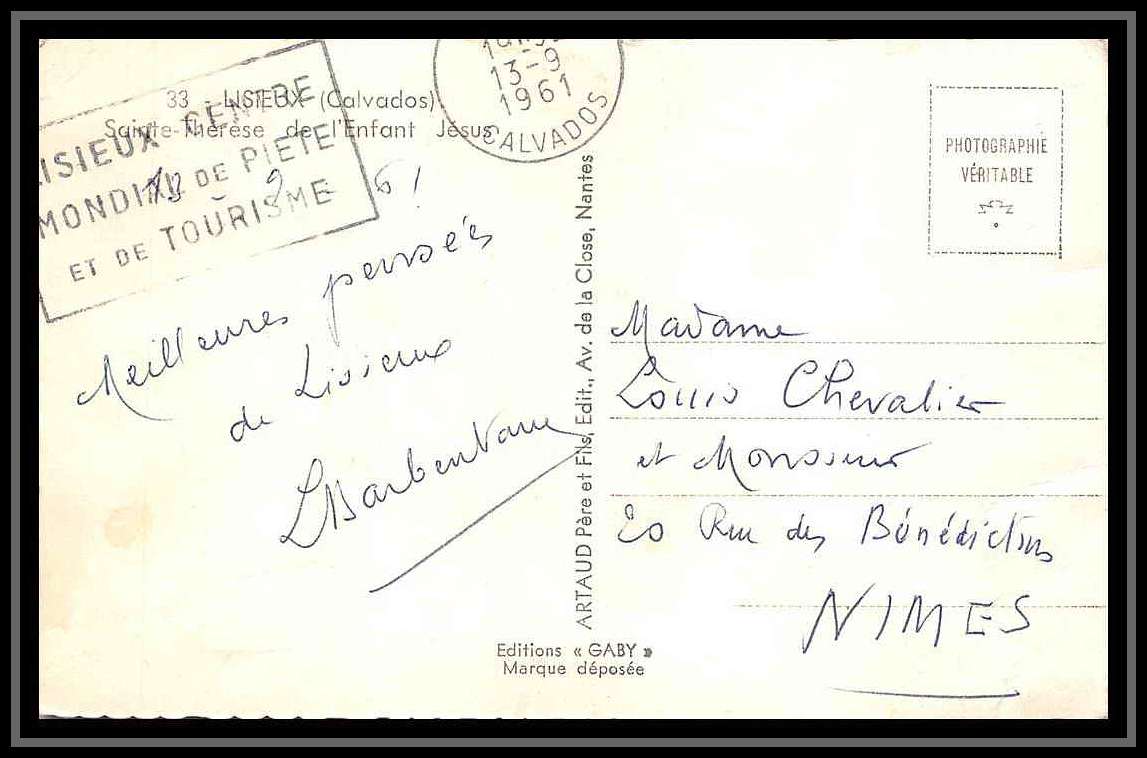 33 - LISIEUX (Calvados)
Sainte-Thérèse de l'Enfant Jésus
LISIEUX CENTRE
MONDIAL DE PIÉTÉ
ET DE TOURISME
13-9
1961
CALVADOS
13 - 9 - 61
Meilleures pensées
de Lisieux
LBarbentane
ARTAUD Père et Fils, Edit., Av. de la Close, Nantes
Editions « GABY »
Marque déposée
PHOTOGRAPHIE
VÉRITABLE
Madame
Louis Chevalier
et Monsieur
20 Rue des Bénédictins
NIMES